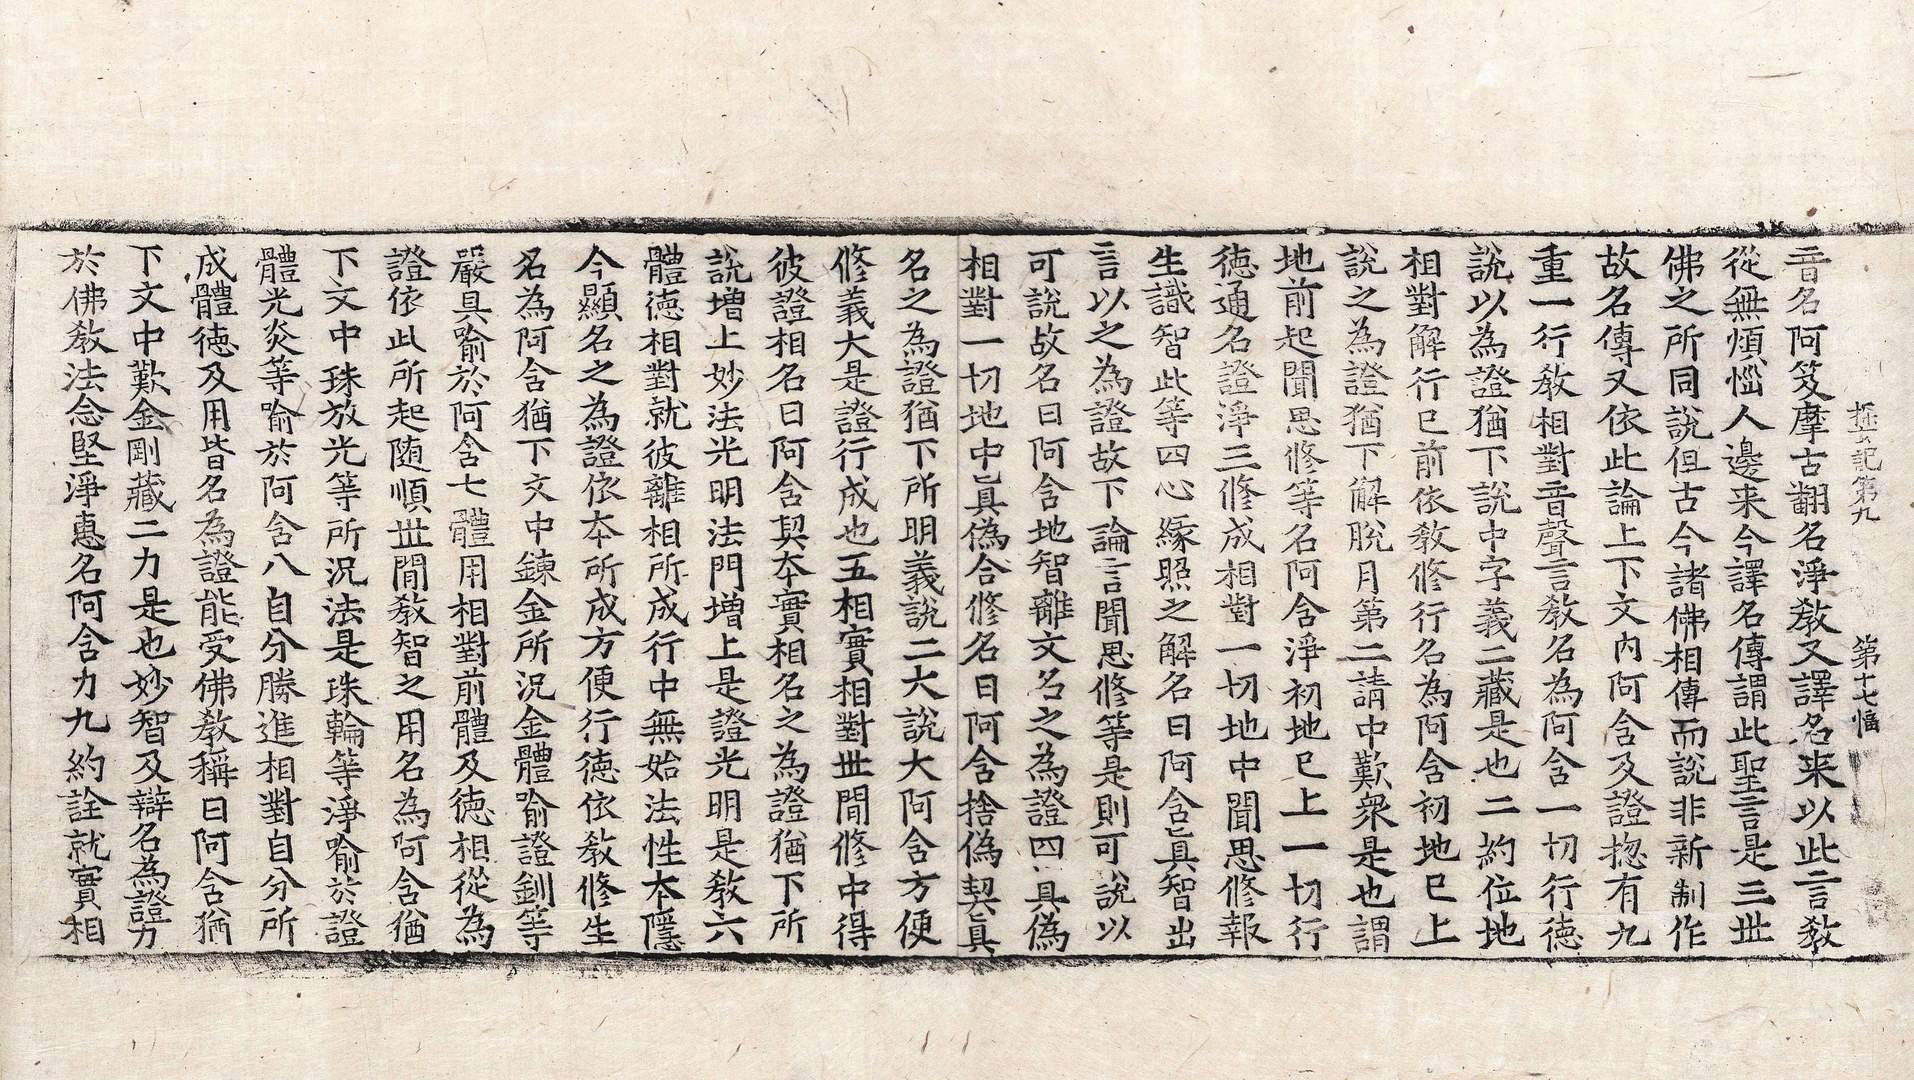 探玄記第九　第十七幅
音名阿笈摩古翻名淨教又譯名来以此言教
從無煩惱人邊来今譯名傳謂此聖言是三世
佛之所同說但古今諸佛相傳而說非新制作
故名傳又依此論上下文內阿含及證惣有九
重一行教相對音聲言教名為阿含一切行德
說以為證猶下說中字義二藏是也二約位地
相對解行巳前依教修行名為阿含初地巳上
說之為證猶下解脫月第二請中歎衆是也謂
地前起聞思修等名阿含淨初地巳上一切行
德通名證淨三修成相對一切地中聞思修報
生識智此等四心緣照之解名曰阿含真智出
言以之為證故下論言聞思修等是則可說以
可說故名曰阿含地智離文名之為證四真偽
相對一切地中真偽合修名曰阿含捨偽契真
名之為證猶下所明義說二大說大阿含方便
修義大是證行成也五相實相對世間修中得
彼證相名曰阿含契本實相名之為證猶下所
說增上妙法光明法門增上是證光明是教六
體德相對就彼離相所成行中無始法性本隱
今顯名之為證依本所成方便行德依教修生
名為阿含猶下文中鍊金所況金體喻證釧等
嚴具喻於阿含七體用相對前體及德相從為
證依此所起随順世間教智之用名為阿含猶
下文中珠放光等所況法是珠輪等淨喻於證
體光炎等喻於阿含八自分勝進相對自分所
成體德及用皆名為證能受佛教稱曰阿含猶
下文中歎金剛藏二力是也妙智及辯名為證力
於佛教法念堅淨惠名阿含力九約詮就實相